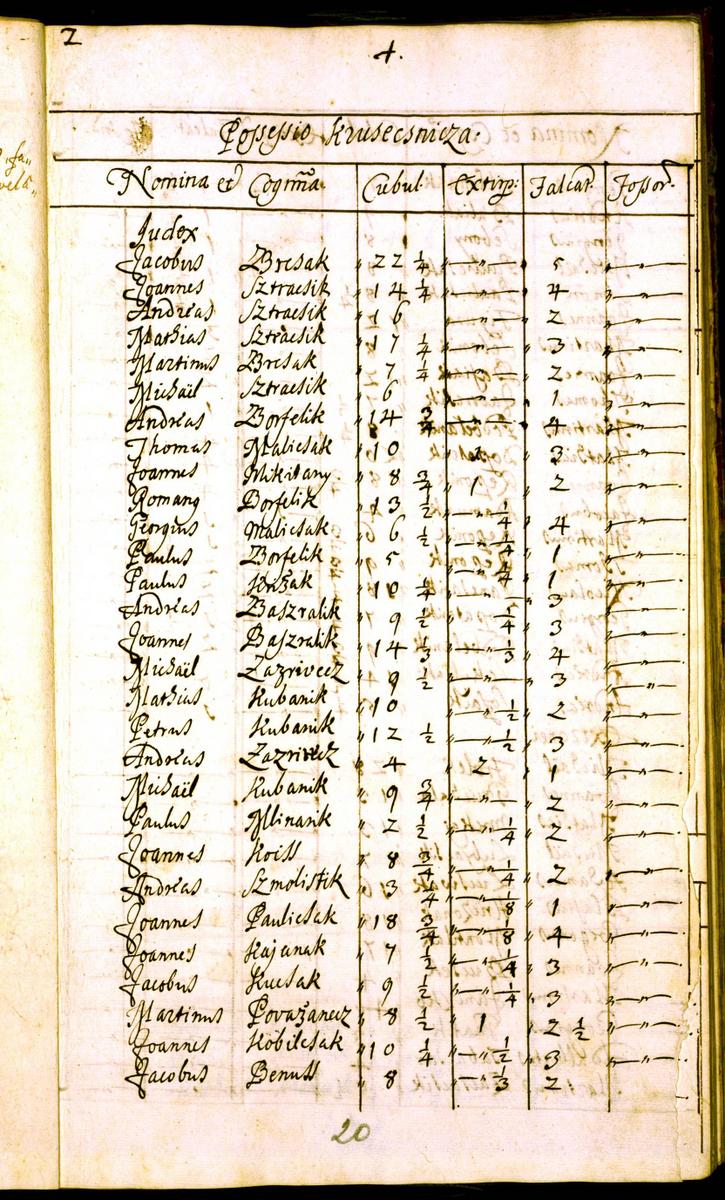 2
4.
Possessio Krusecsnicza.
Nomina et Cognña Cubul: Extirp: Falcat. Fossor.
Judex
Jacobus Zbrcsak " 22 1/4 " — " — 5 " — " —
Joannes Sztracsik " 14 1/4 " — " — 4 " — " —
Andreas Sztracsik " 16 " — " — 2 " — " —
Mathias Sztracsik " 17 1/4 " — " — 3 " — " —
Martinus Zbrcsak " 7 1/4 " — " — 2 " — " —
Michaël Sztracsik " 6 " — " — 1. " — " —
Andreas Borfelik " 14 3/4 " — " — 4 " — " —
Thomas Malicsak " 10 3 " — " —
Joannes Mikitany " 8 3/4 " 1 " 2 " — " —
Romanq Borfelik " 13 1/2 " — 1/4 " — " —
Georgius Malicsak " 6 1/2 " — 1/4 4 " — " —
Paulus Borfelik " 5 " — " 1/4 1 " — " —
Paulus " 10 1/4 1
Andreas Baszralik " 9 1/2 " — 1/4 3 " — " —
Joannes Baszralik " 14 1/3 " — " 1/3 4 " — " —
Michaël Zazrivecz " 9 1/2 " — " — 3 " — " —
Mathias Kubanik " 10 " — " 1/2 2 " — " —
Petrus Kubanik " 12 1/2 " — " 1/2 3 " — " —
Andreas Zazrivecz " 4 " 2 1 " — " —
Michaël Kubanik " 9 3/4 " — " — 2 " — " —
Paulus Mlinarik " 2 1/2 " — " 1/4 2 " — " —
Joannes Koiss " 8 3/4 " — " 1/4 2 " — " —
Andreas Szmolistik " 3 " — " 1/8 1 " — " —
Joannes Paulicsak " 18 3/4 " — " 1/8 4 " — " —
Joannes Kajanak " 7 1/2 " — " 1/4 3 " — " —
Jacobus Kucsak " 9 1/2 " — " 1/4 3 " — " —
Martinus Považanecz " 8 1/2 " 1 " 2 1/2 " — " —
Joannes Kobilcsak " 10 1/4 " — " 1/2 3 " — " —
Jacobus Benuss " 8 " — " 1/3 2
20